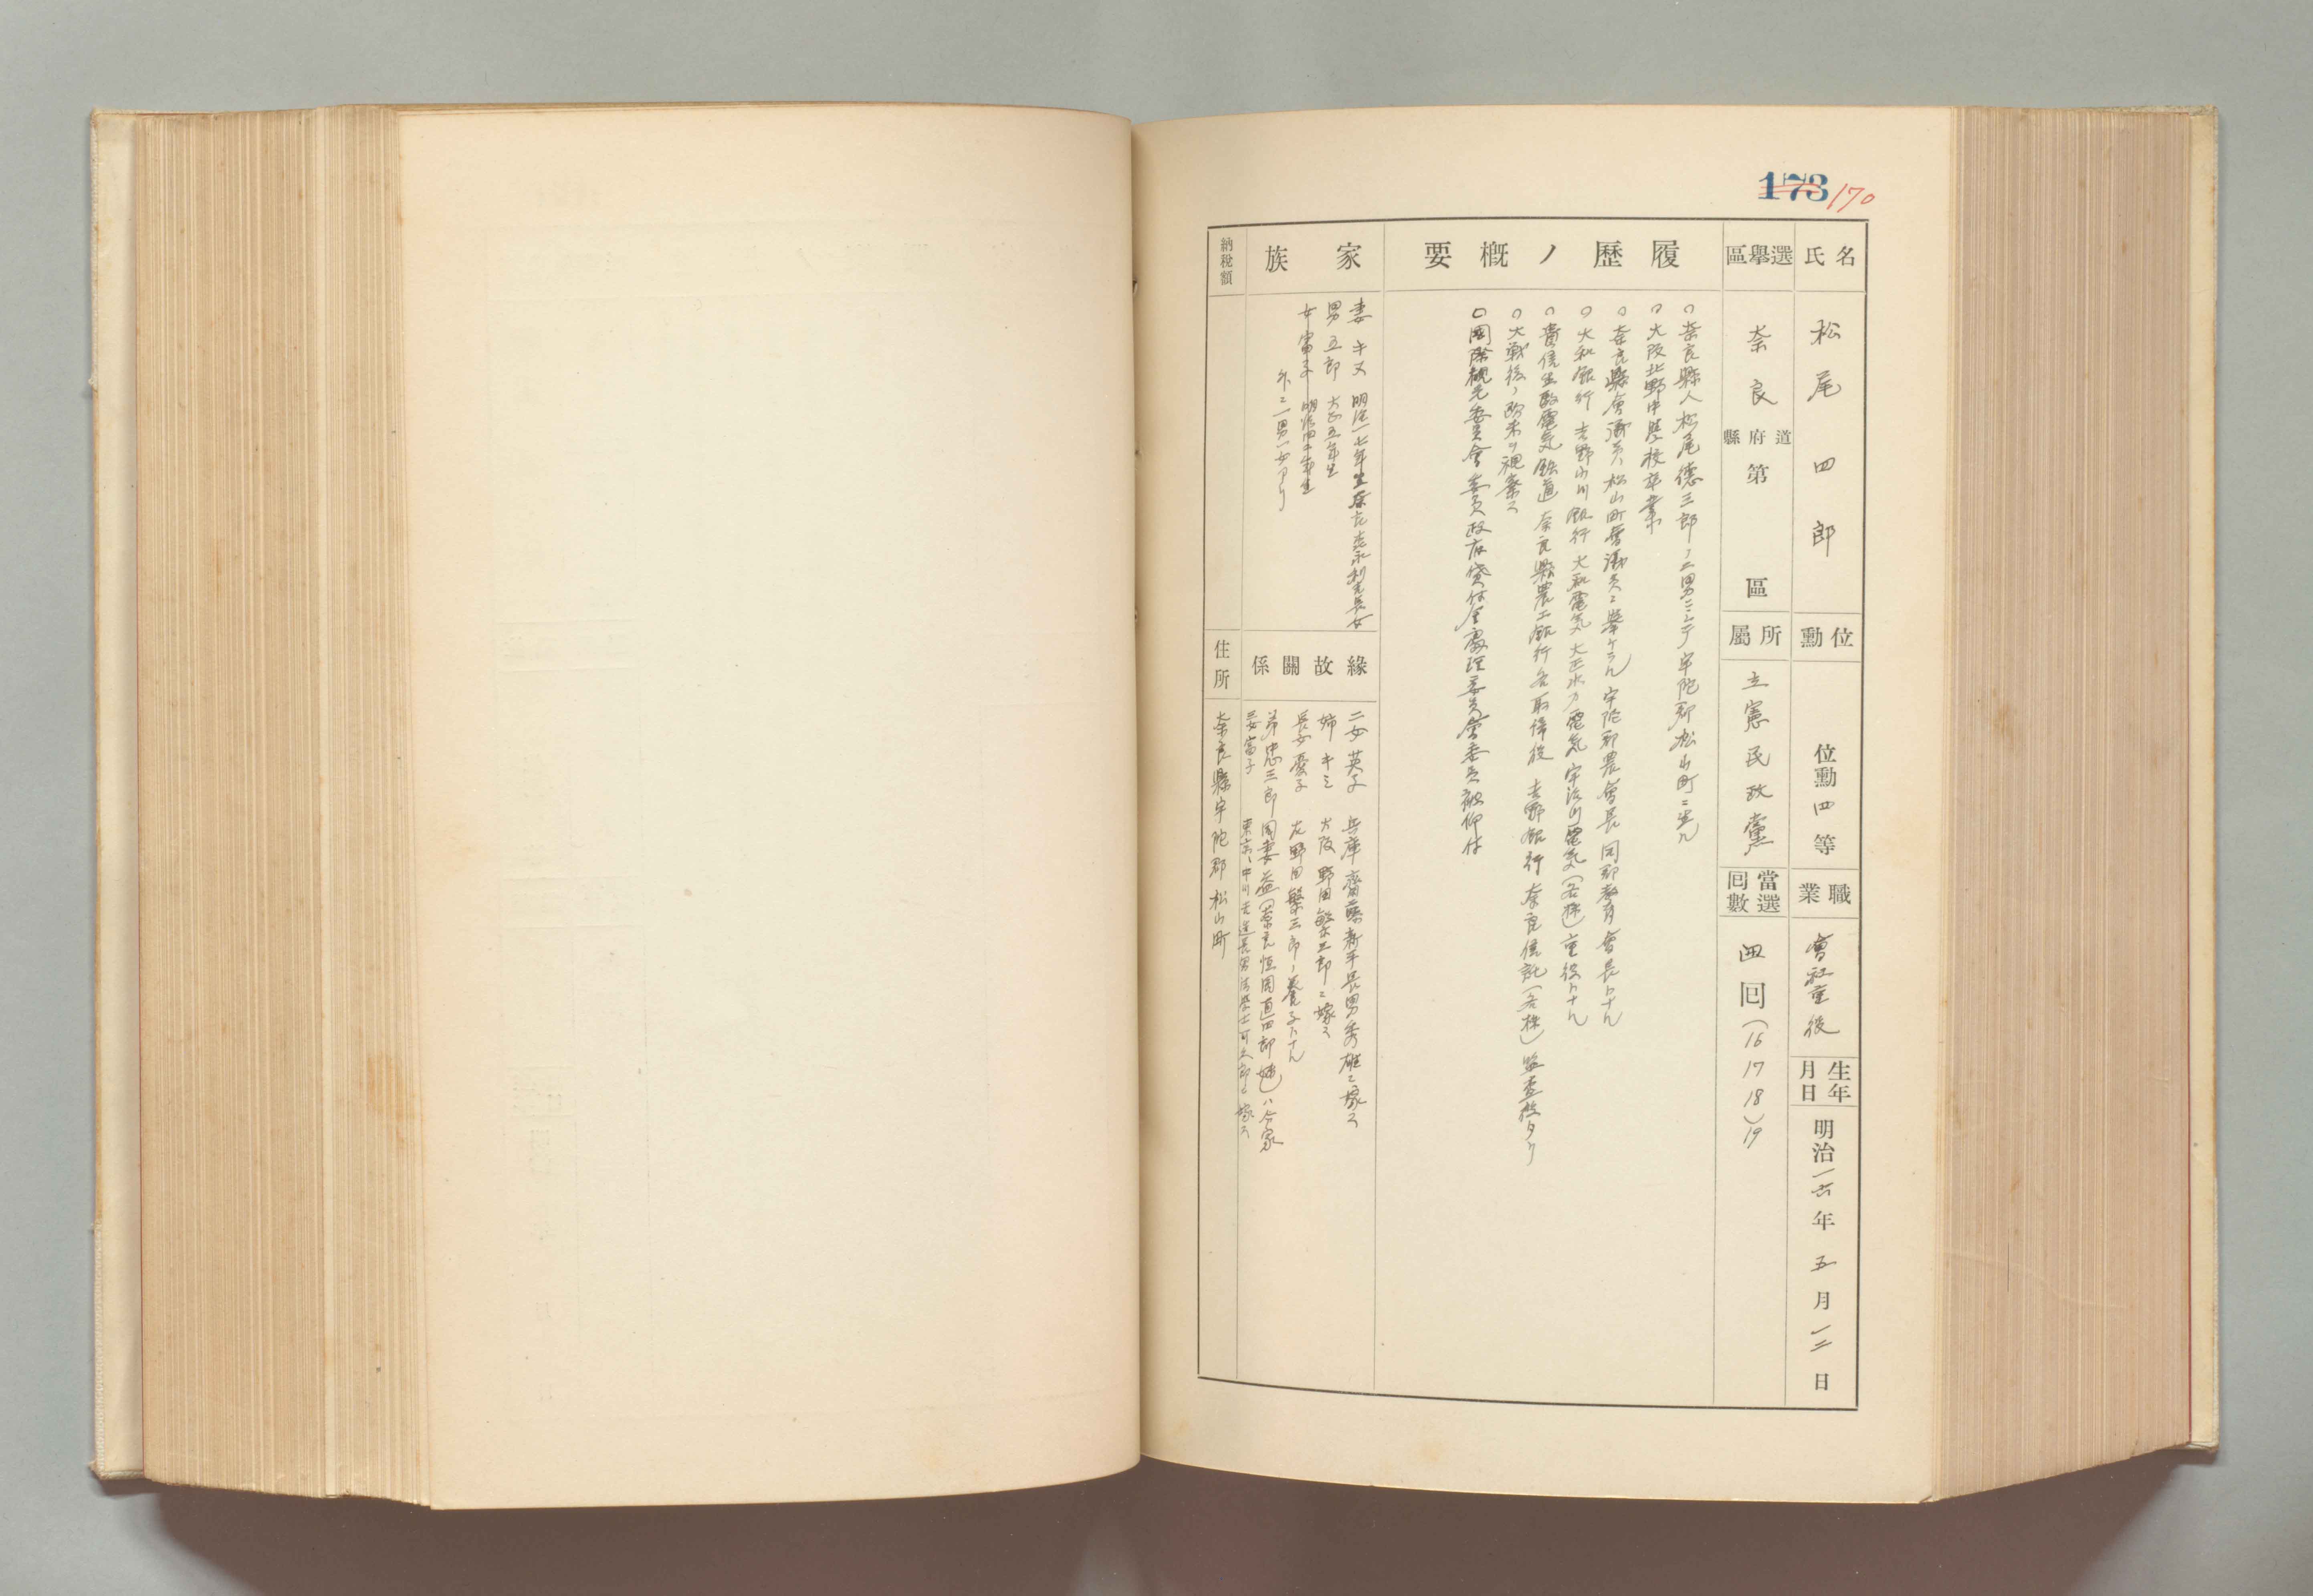 173 170
氏名
松尾四郎
位勳
位勳四等
職業
會社重役
生年月日
明治一六年五月一二日
選擧區
奈良 道府縣 第 區
所屬
立憲民政黨
當選回數
四回(16 17 18)19
履歷ノ概要
○奈良縣人松尾德三郎ノ二男ニシテ宇陀郡松山町ニ生ル
○大阪北野中學校卒業
○奈良縣會議員、松山町會議員ニ擧ケラル 宇陀郡農會長 同郡敎育會長トナル
○大和銀行 吉野小川銀行 大和電気 大正水力電気 宇治川電気(各株)重役トナル
○信貴生駒電気鉄道 奈良縣農工銀行各取締役 吉野銀行 奈良信託(各株)監査役タリ
○大戦後、欧米ヲ視察ス
○國際観光委員會委員政府貸付金處理委員會委員被仰付
家族
妻 キヌ 明治一七年生奈良 長女
男 五郎 大正五年生
女 富子 明治四十年生
外ニ一男一女アリ
緣故關係
二女 英子 兵庫 齋藤新平長男秀雄ニ嫁ス
姉 キミ 大阪 野田繁三郎ニ嫁ス
長女 慶子 右野田繁三郎ノ養子トナル
弟 忠三郎 同妻益(奈良恒岡直四郎姉)ハ分家
三女富子 東京、中川 長男法學士 嫁ス
納稅額
住所
奈良縣宇陀郡松山町